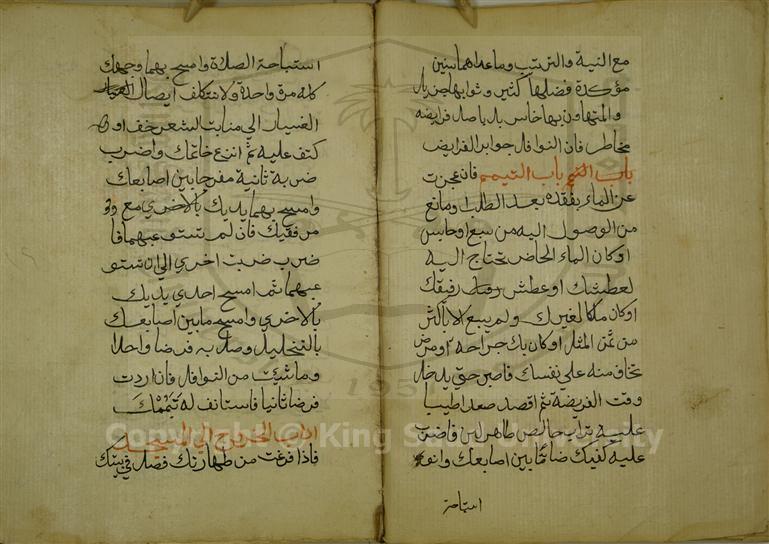 مع النية والترتيب وما عداهما سنن
مؤكدة فضلها كثير وثوابها جزيل
والمتهاون بها خاسر بل باصل فرايضه
مخاطر فان النوافل جوابر الفرايض
باب التيمم فان عجزت
عن الماء بفقده بعد الطلب او مانع
من الوصول اليه من سبع او حابس
او كان الماء الحاضر تحتاج اليه
لعطشك او عطش رفيقك
او كان ملكا لغيرك ولم يبع الا باكثر
من ثمن المثل او كان بك جراحه او مرض
تخاف منه علي نفسك فاصبر حتي يدخل
وقت الفريضة ثم اقصد صعيدا طيبا
عليه تراب خالص طاهر لين فاضرب
عليه كفيك ضاما بين اصابعك وانو
استباحة
استباحة الصلاة وامسح بهما وجهك
كله مرة واحدة ولا تتكلف ايصال
الغبار الي منابت الشعر خف او
كثف عليه ثم انزع خاتمك واضرب
ضربه ثانية مفرجا بين اصابعك
وامسح بهما يديك بالاخري مع
مرفقيك فان لم تستوعبهما فا
ضرب ضربت اخري الي ان تستو
عبهما ثم امسح احدي يديك
بالاخري وامسح ما بين اصابعك
بالتخليل وصل به فرضا واحدا
وما شيت من النوافل فان اردت
فرضا ثانيا فاستانف له تيممك
اداب الخروج الي المسجد
فاذا فرغت من طهارتك فصل في بيتك
Copyright © King Saud University